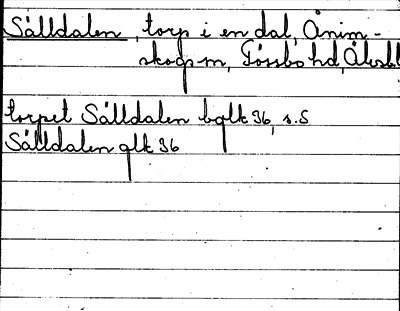 Sålldalen, torp i en dal, Ånim-
skogs sn, Tössbo hd, Älvsbl
torpet Sålldalen bglk 36, s. 5
Sålldalen glk 36